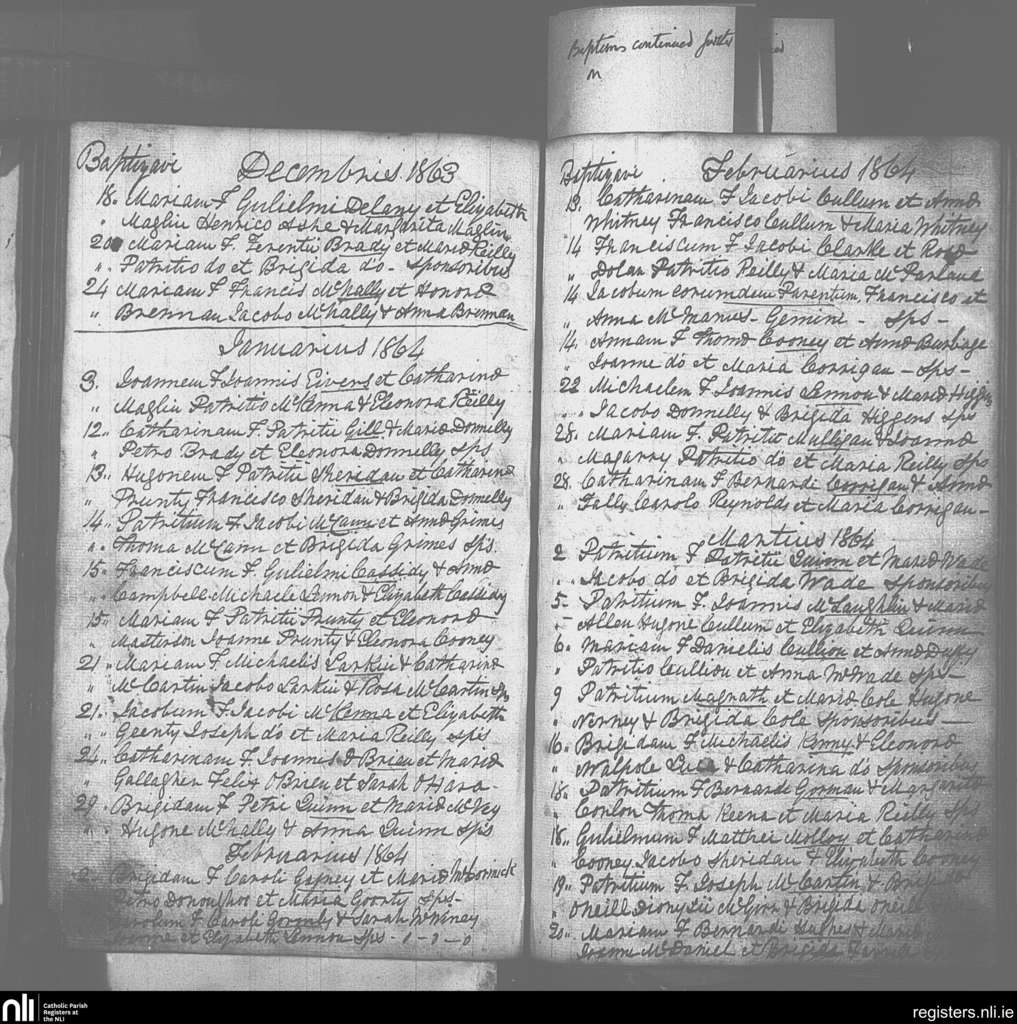 Baptizavi Decembries 1863
18. Mariam F Gulielmi Delany et Elizabeth
" Maglin Henrico Ashe & Margarita Maglin
20 Mariam F. Terentii Brady et Mariæ Reilly
". Patritio do et Brigida do - Sponsoribus
24 Mariam F Francis McNally et Honoræ
" Brennan Jacobo McNally & Anna Brennan
Januarius 1864
3. Joannem F Joannis Eivers et Catharinæ
" Maglin Patritio McKenna & Eleonora Reilly
12" Catharinam F. Patritii Gill & Mariæ Donnelly
" Petro Brady et Eleonora Donnelly Sps
13" Hugonem F Patritii Sheridan et Catharinæ
" Prunty Francisco Sheridan & Brigida Donnelly
14" Patritium F. Jacobi McCann et Annæ Grimes
" Thoma McCann et Brigida Grimes Sps.
15" Franciscum F. Gulielmi Cassidy & Annæ
" Campbell Michaele Lennon & Elizabeth Cassidy
15" Mariam F Patritii Prunty et Eleonoræ
" Masterson Joanne Prunty & Eleonora Cooney
21" Mariam F Michaelis Larkin & Catharinæ
" McCartin Jacobo Larkin & Rosa McCartin Sps
21" Jacobum F. Jacobi McKenna et Elizabeth
" " Geenty Joseph do et Maria Reilly Sps
24" Catharinam F. Joannis O Brien et Mariæ
" Gallagher Felix OBrien et Sarah OHara -
29" Brigidam F Petri Quinn et Mariæ McVey
" " Hugone McNally & Anna Quinn Sps
Februarius 1864
Brigidam F Caroli Gagney et Mariæ McCormick
Petro Donoughoe et Maria Goorty Sps-
F Caroli Gormly & Sarah
et Elizabeth Lennon Sps -
Baptisms continued
Baptizavi Februarius 1864
13. Catharinam F Jacobi Cullum et Annæ
Whitney Francisco Cullum & Maria Whitney
14 Franciscum F Jacobi Clarke et Rosæ
" Dolan Patritio Reilly & Maria McParland
14 Jacobum eorumdem Parentum Francisco et
" Anna McManus - Gemini - Sps -
14. Annam F Thomæ Cooney et Annæ Burbage
" Joanne do et Maria Corrigan - Sps -
22 Michaelem F Joannis Lennon & Mariæ Higgins
" " Jacobo Donnelly & Brigida Higgens Sps
28" Mariam F. Patritii Mulligan & Joannæ
" Magarry Patritio do et Maria Reilly Sps
28. Catharinam F Bernardi Corrigan & Annæ
" Fally Carolo Reynolds et Maria Corrigan -
Martius 1864
2 Patritium F Patritii Quinn et Mariæ Wade
" " Jacobo do et Brigida Wade Sponsoribus
5- Patritium F. Joannis McLaughlin & Mariæ
" Allen Hugone Cullum et Elizabeth Quinn
6" Mariam F Danielis Cullion et Annæ Duffy
" Patritio Cullion et Anna McWade Sps -
9 Patritium Magrath et Mariæ Cole Hugone
" Nerney & Brigida Cole Sponsoribus -
16" Brigidam F Michaelis Kenny & Eleonoræ
" Walpole Luca & Catharina do Sponsoribus
18" Patritium F Bernardi Gorman & Margaritæ
" Conlon Thoma Keena et Maria Reilly Sps
18" Gulielmum F Matthei Molloy et Catharinæ
" Cooney Jacobo Sheridan & Elizabeth Cooney
19" Patritium F. Joseph McCartin &
" ONeill Dionysii McGirr & Brigida ONeill
20" Mariam F Bernardi Hughes & Mariæ
Joanne McDaniel et Brigida
nli Catholic Parish
Registers at
the NLI
registers.nli.ie